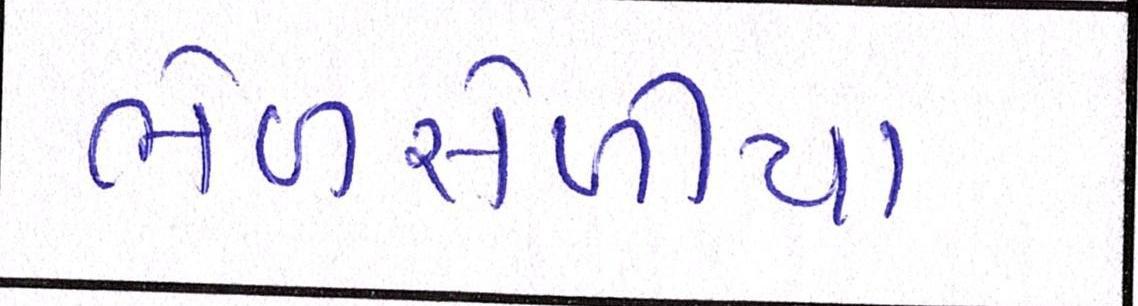 ભેળસેળીયા